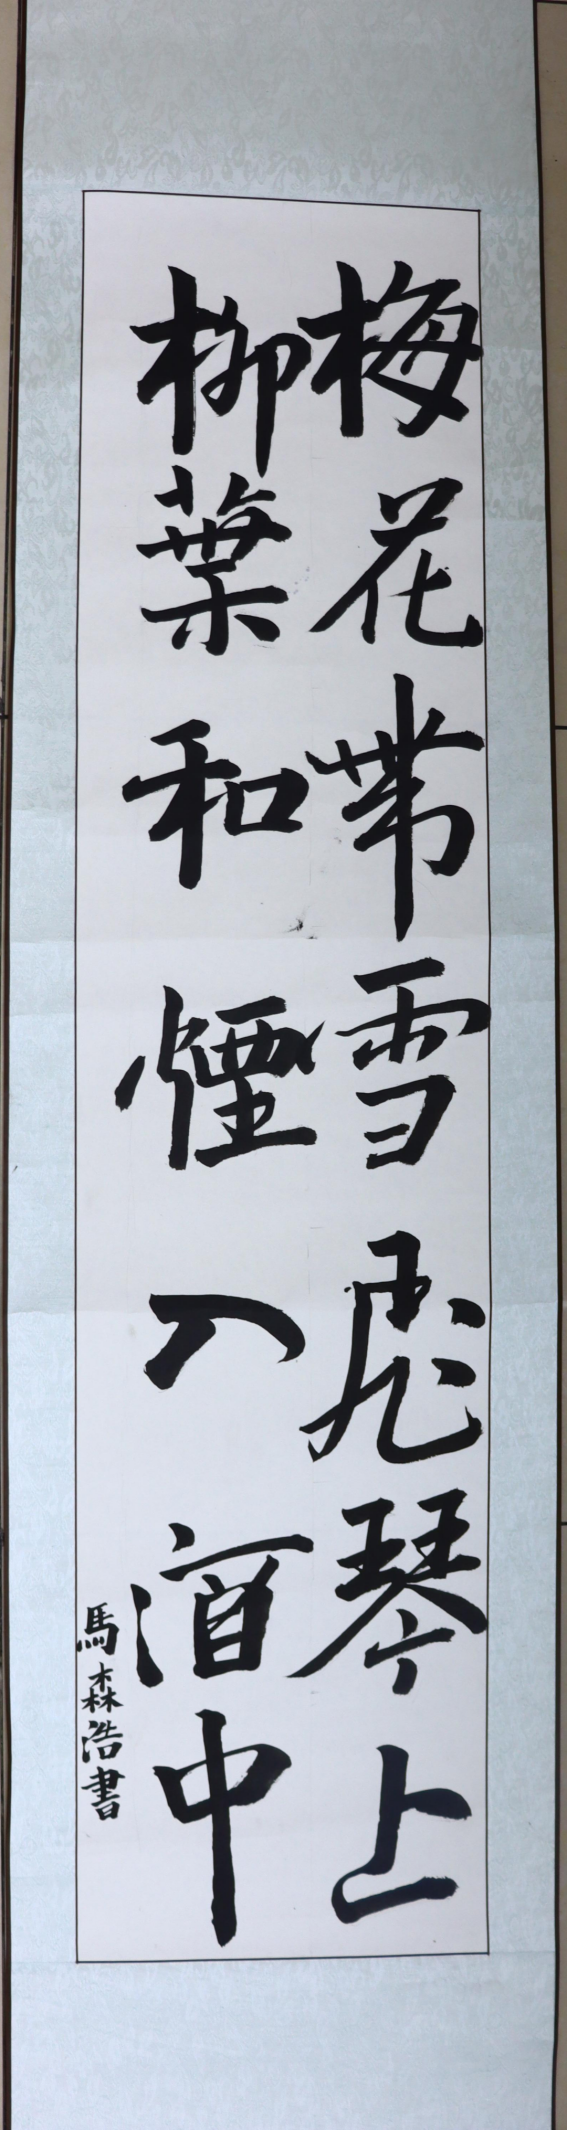 梅花帶雪飛琴上
柳葉和煙入酒中
馬森浩書